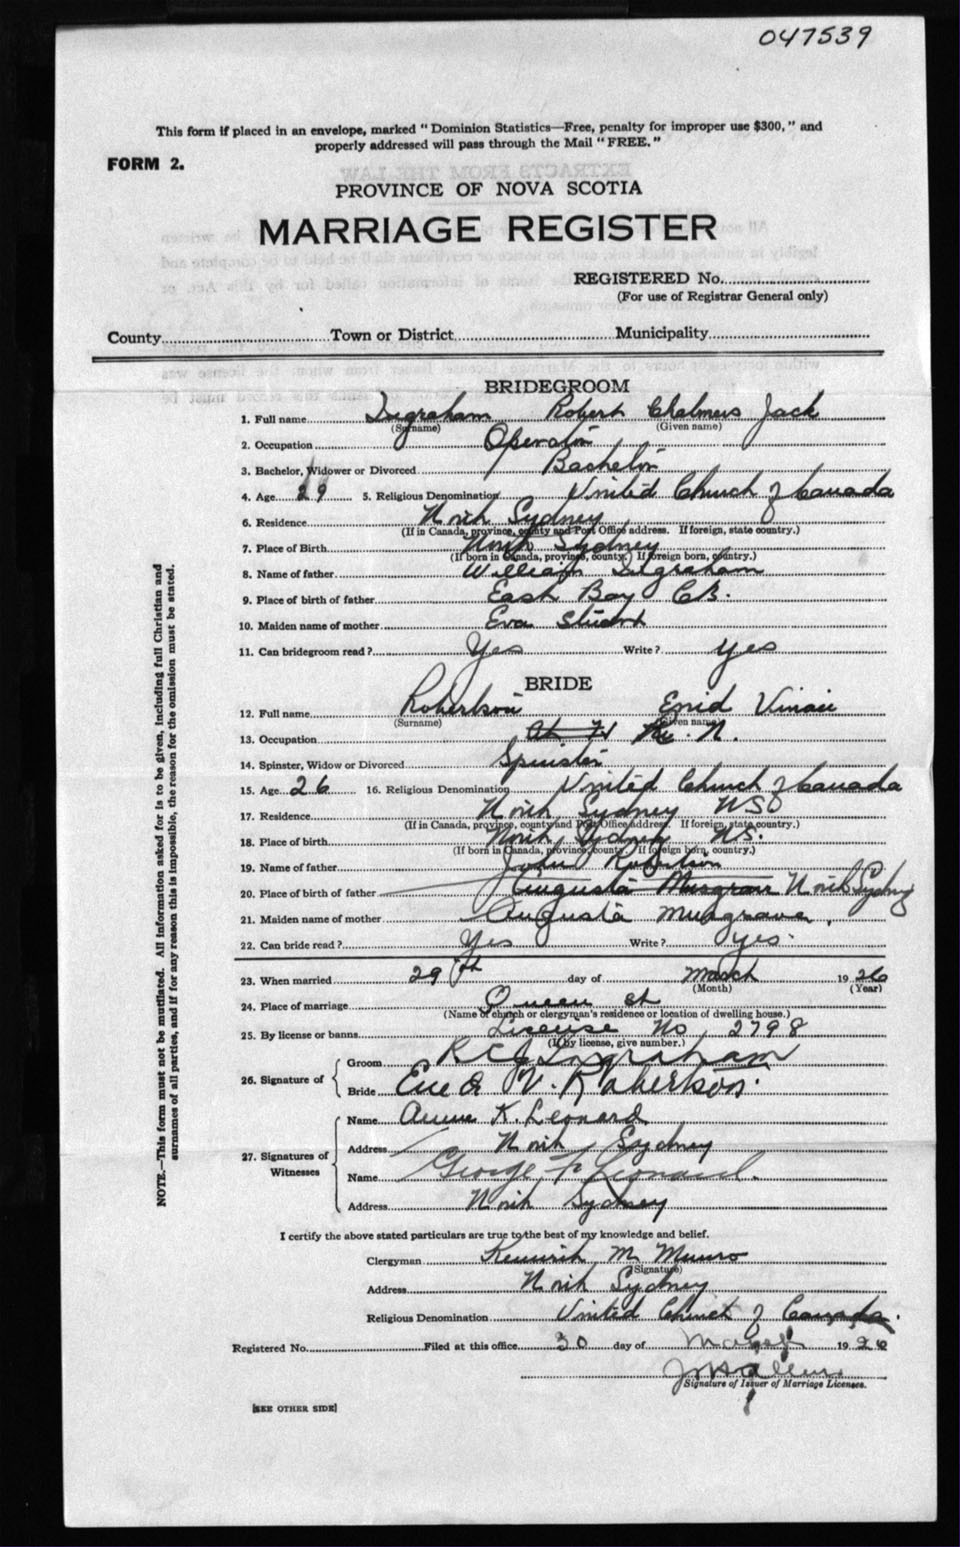 047539
This form if placed in an envelope, marked "Dominion Statistics—Free, penalty for improper use $300," and
properly addressed will pass through the Mail "FREE."
FORM 2.
PROVINCE OF NOVA SCOTIA
MARRIAGE REGISTER
REGISTERED No.
(For use of Registrar General only)
County Town or District Municipality
BRIDEGROOM
1. Full name Ingraham Robert Chalmers Jack
(Surname) (Given name)
2. Occupation Operator
3. Bachelor, Widower or Divorced Bachelor
4. Age 29 5. Religious Denomination United Church of Canada
6. Residence North Sydney
(If in Canada, province, county and Post Office address. If foreign, state country.)
7. Place of Birth North Sydney
(If born in Canada, province, county.) If foreign born, country.)
8. Name of father William Ingraham
9. Place of birth of father East Bay C.B.
10. Maiden name of mother Eva Stuart
11. Can bridegroom read? Yes Write? yes
BRIDE
12. Full name Robertson Enid Vivian
(Surname) (Given name)
13. Occupation At H R. N.
14. Spinster, Widow or Divorced Spinster
15. Age 26 16. Religious Denomination United Church of Canada
17. Residence North Sydney NS
(If in Canada, province, county and Post Office address. If foreign, state country.)
18. Place of birth North Sydney NS.
(If born in Canada, province, county. If foreign born, country.)
19. Name of father John Robertson
20. Place of birth of father Augusta Musgrave North Sydney
21. Maiden name of mother Augusta Musgrave.
22. Can bride read? Yes Write? yes.
23. When married 29th day of March 1926
(Month) (Year)
24. Place of marriage Queen St
(Name of church or clergyman's residence or location of dwelling house.)
25. By license or banns License No 2798
(If by license, give number.)
26. Signature of Groom R C J Ingraham
Bride Enid V. Robertson.
27. Signatures of Witnesses
Name Annie K. Leonard
Address North Sydney
Name George F. Leonard.
Address North Sydney
I certify the above stated particulars are true to the best of my knowledge and belief.
Clergyman M. Munro
(Signature)
Address North Sydney
Religious Denomination United Church of Canada.
Registered No. Filed at this office 30 day of March 1926
Signature of Issuer of Marriage Licenses.
[SEE OTHER SIDE]
NOTE.—This form must not be mutilated. All information asked for is to be given, including full Christian and
surnames of all parties, and if for any reason this is impossible, the reason for the omission must be stated.